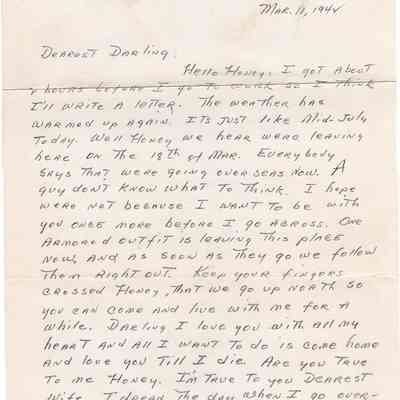 Mar. 11, 1944
Dearest Darling:
Hello Honey, I got about
2 hours before I go to work so I think
I'll write a letter. The weather has
warmed up again. Its just like Mid-July
today. Well Honey we hear were leaving
here on the 18th of Mar. Everybody
says that were going overseas now. A
guy don't know what to think. I hope
were not because I want to be with
you once more before I go across. One
armored outfit is leaving this place
now, and as soon as they go we follow
them right out. Keep your fingers
crossed Honey, that we go up north so
you can come and live with me for a
while. Darling I love you with all my
heart and all I want to do is come home
and love you till I die. Are you true
to me Honey. I'm true to you Dearest
Wife. I dread the day when I go over-